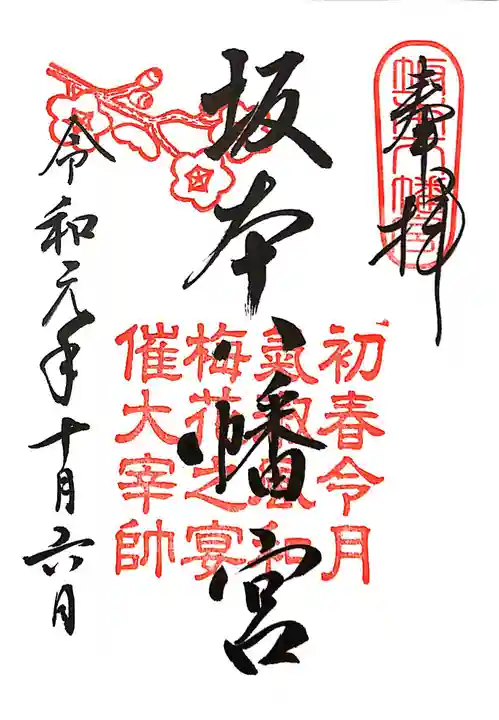 奉拝
坂本八幡宮
坂本八幡宮
初春令月
氣淑風和
梅花之宴
催大宰帥
令和元年十月六日